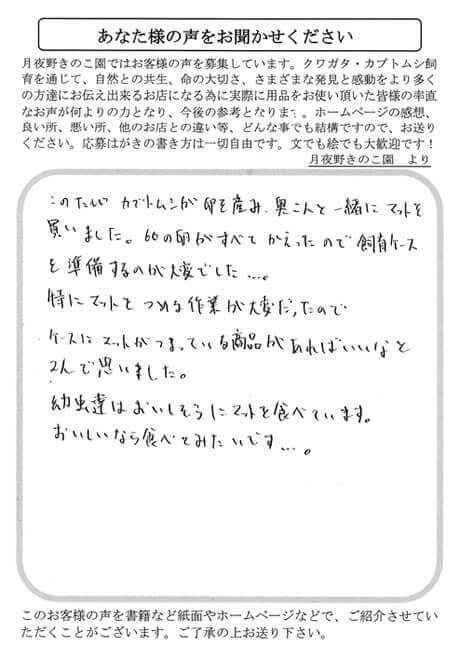 あなた様の声をお聞かせください
月夜野きのこ園ではお客様の声を募集しています。クワガタ・カブトムシ飼
育を通じて、自然との共生、命の大切さ、さまざまな発見と感動をより多く
の方達にお伝え出来るお店になる為に実際に用品をお使い頂いた皆様の率直
なお声が何よりの力となり、今後の参考となります。ホームページの感想、
良い所、悪い所、他のお店との違い等、どんな事でも結構ですので、お送り
ください。応募はがきの書き方は一切自由です。文でも絵でも大歓迎です！
月夜野きのこ園 より
このたび カブトムシが卵を産み、奥さんと一緒にマットを
買いました。60の卵がすべて かえったので飼育ケース
を準備するのが大変でした…。
特にマットを つめる作業が大変だったので
ケースにマットがつまっている商品が あればいいなと
2人で思いました。
幼虫達はおいしそうにマットを食べています。
おいしいなら食べてみたいです…。
このお客様の声を書籍など紙面やホームページなどで、ご紹介させてい
ただくことがございます。ご了承の上お送り下さい。